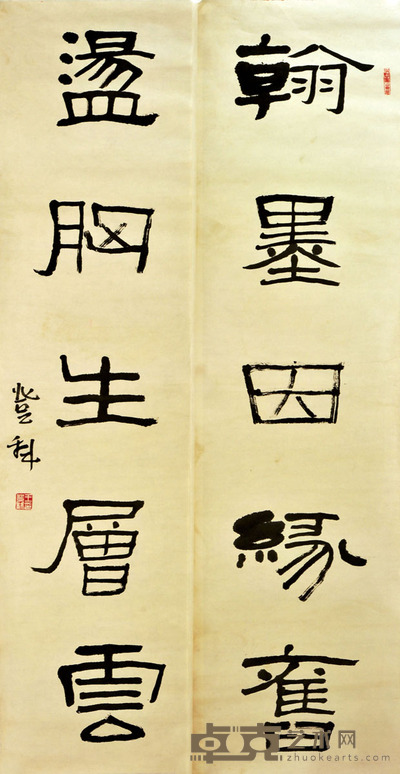 翰墨因緣舊
盪胸生層雲
登科
卓克艺术网
zhuokearts.com